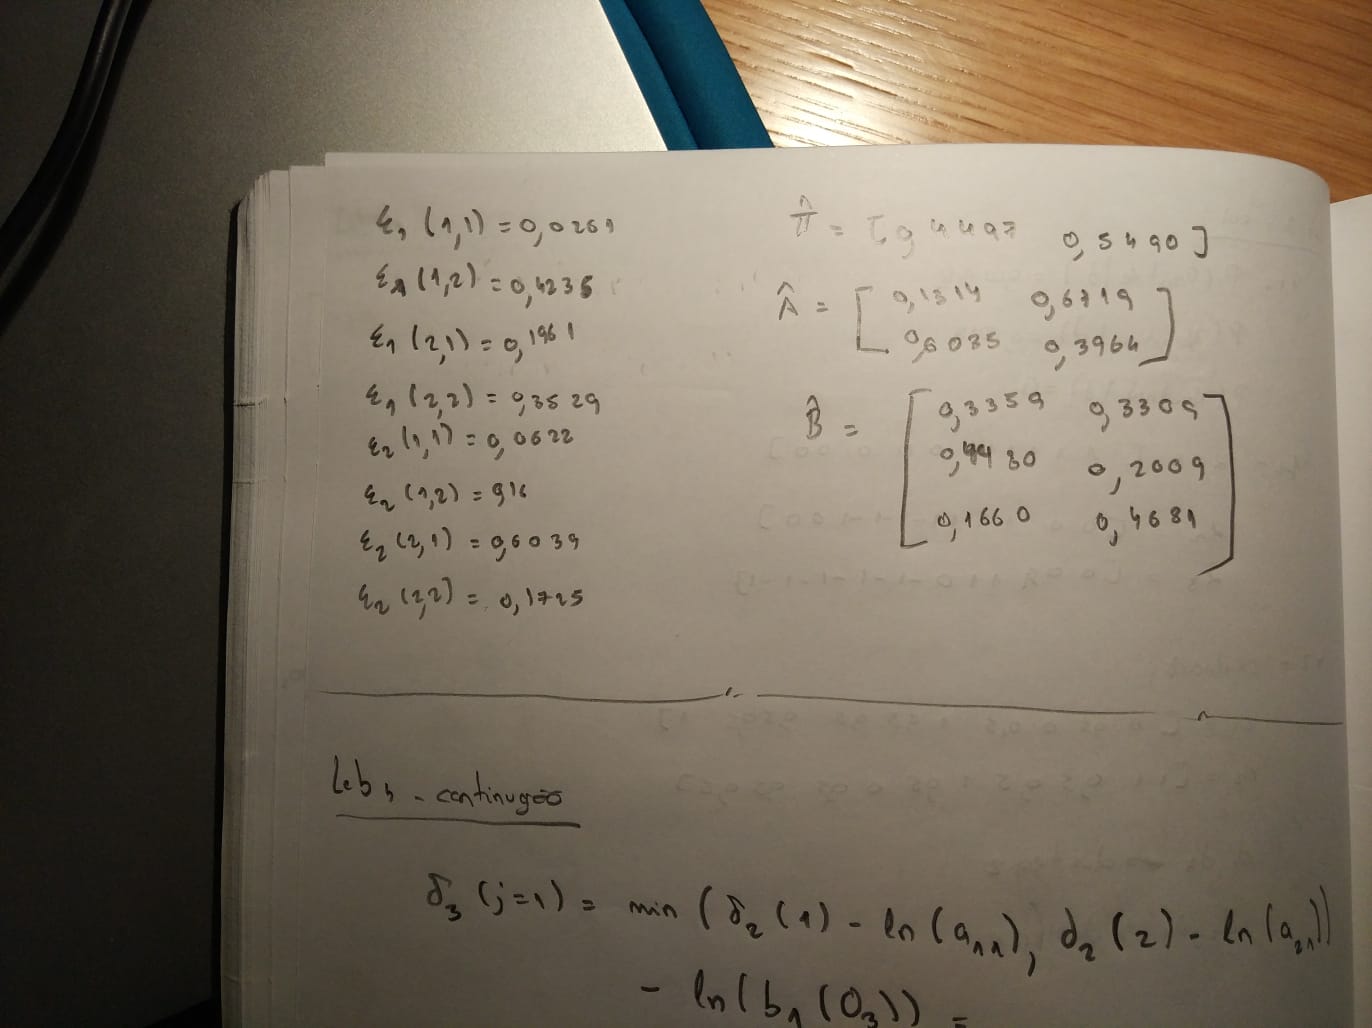 ξ₁ (1,1) = 0,0261
ξ₁ (1,2) = 0,4236
ξ₁ (2,1) = 0,1961
ξ₁ (2,2) = 0,3529
ξ₂ (1,1) = 0,0622
ξ₂ (1,2) = 0,16
ξ₂ (2,1) = 0,6039
ξ₂ (2,2) = 0,1725
π̂ = [0,4497 0,5490]
Â = [ 0,1314 0,6719
0,6035 0,3964 ]
B̂ = [ 0,3359 0,3309
0,4480 0,2009
0,1660 0,4681 ]
- continução
δ₃ (j=1) = min (δ₂ (1) - ln (a₁₁), δ₂ (2) - ln (a₂₁))
- ln (b₁ (O₃)) =